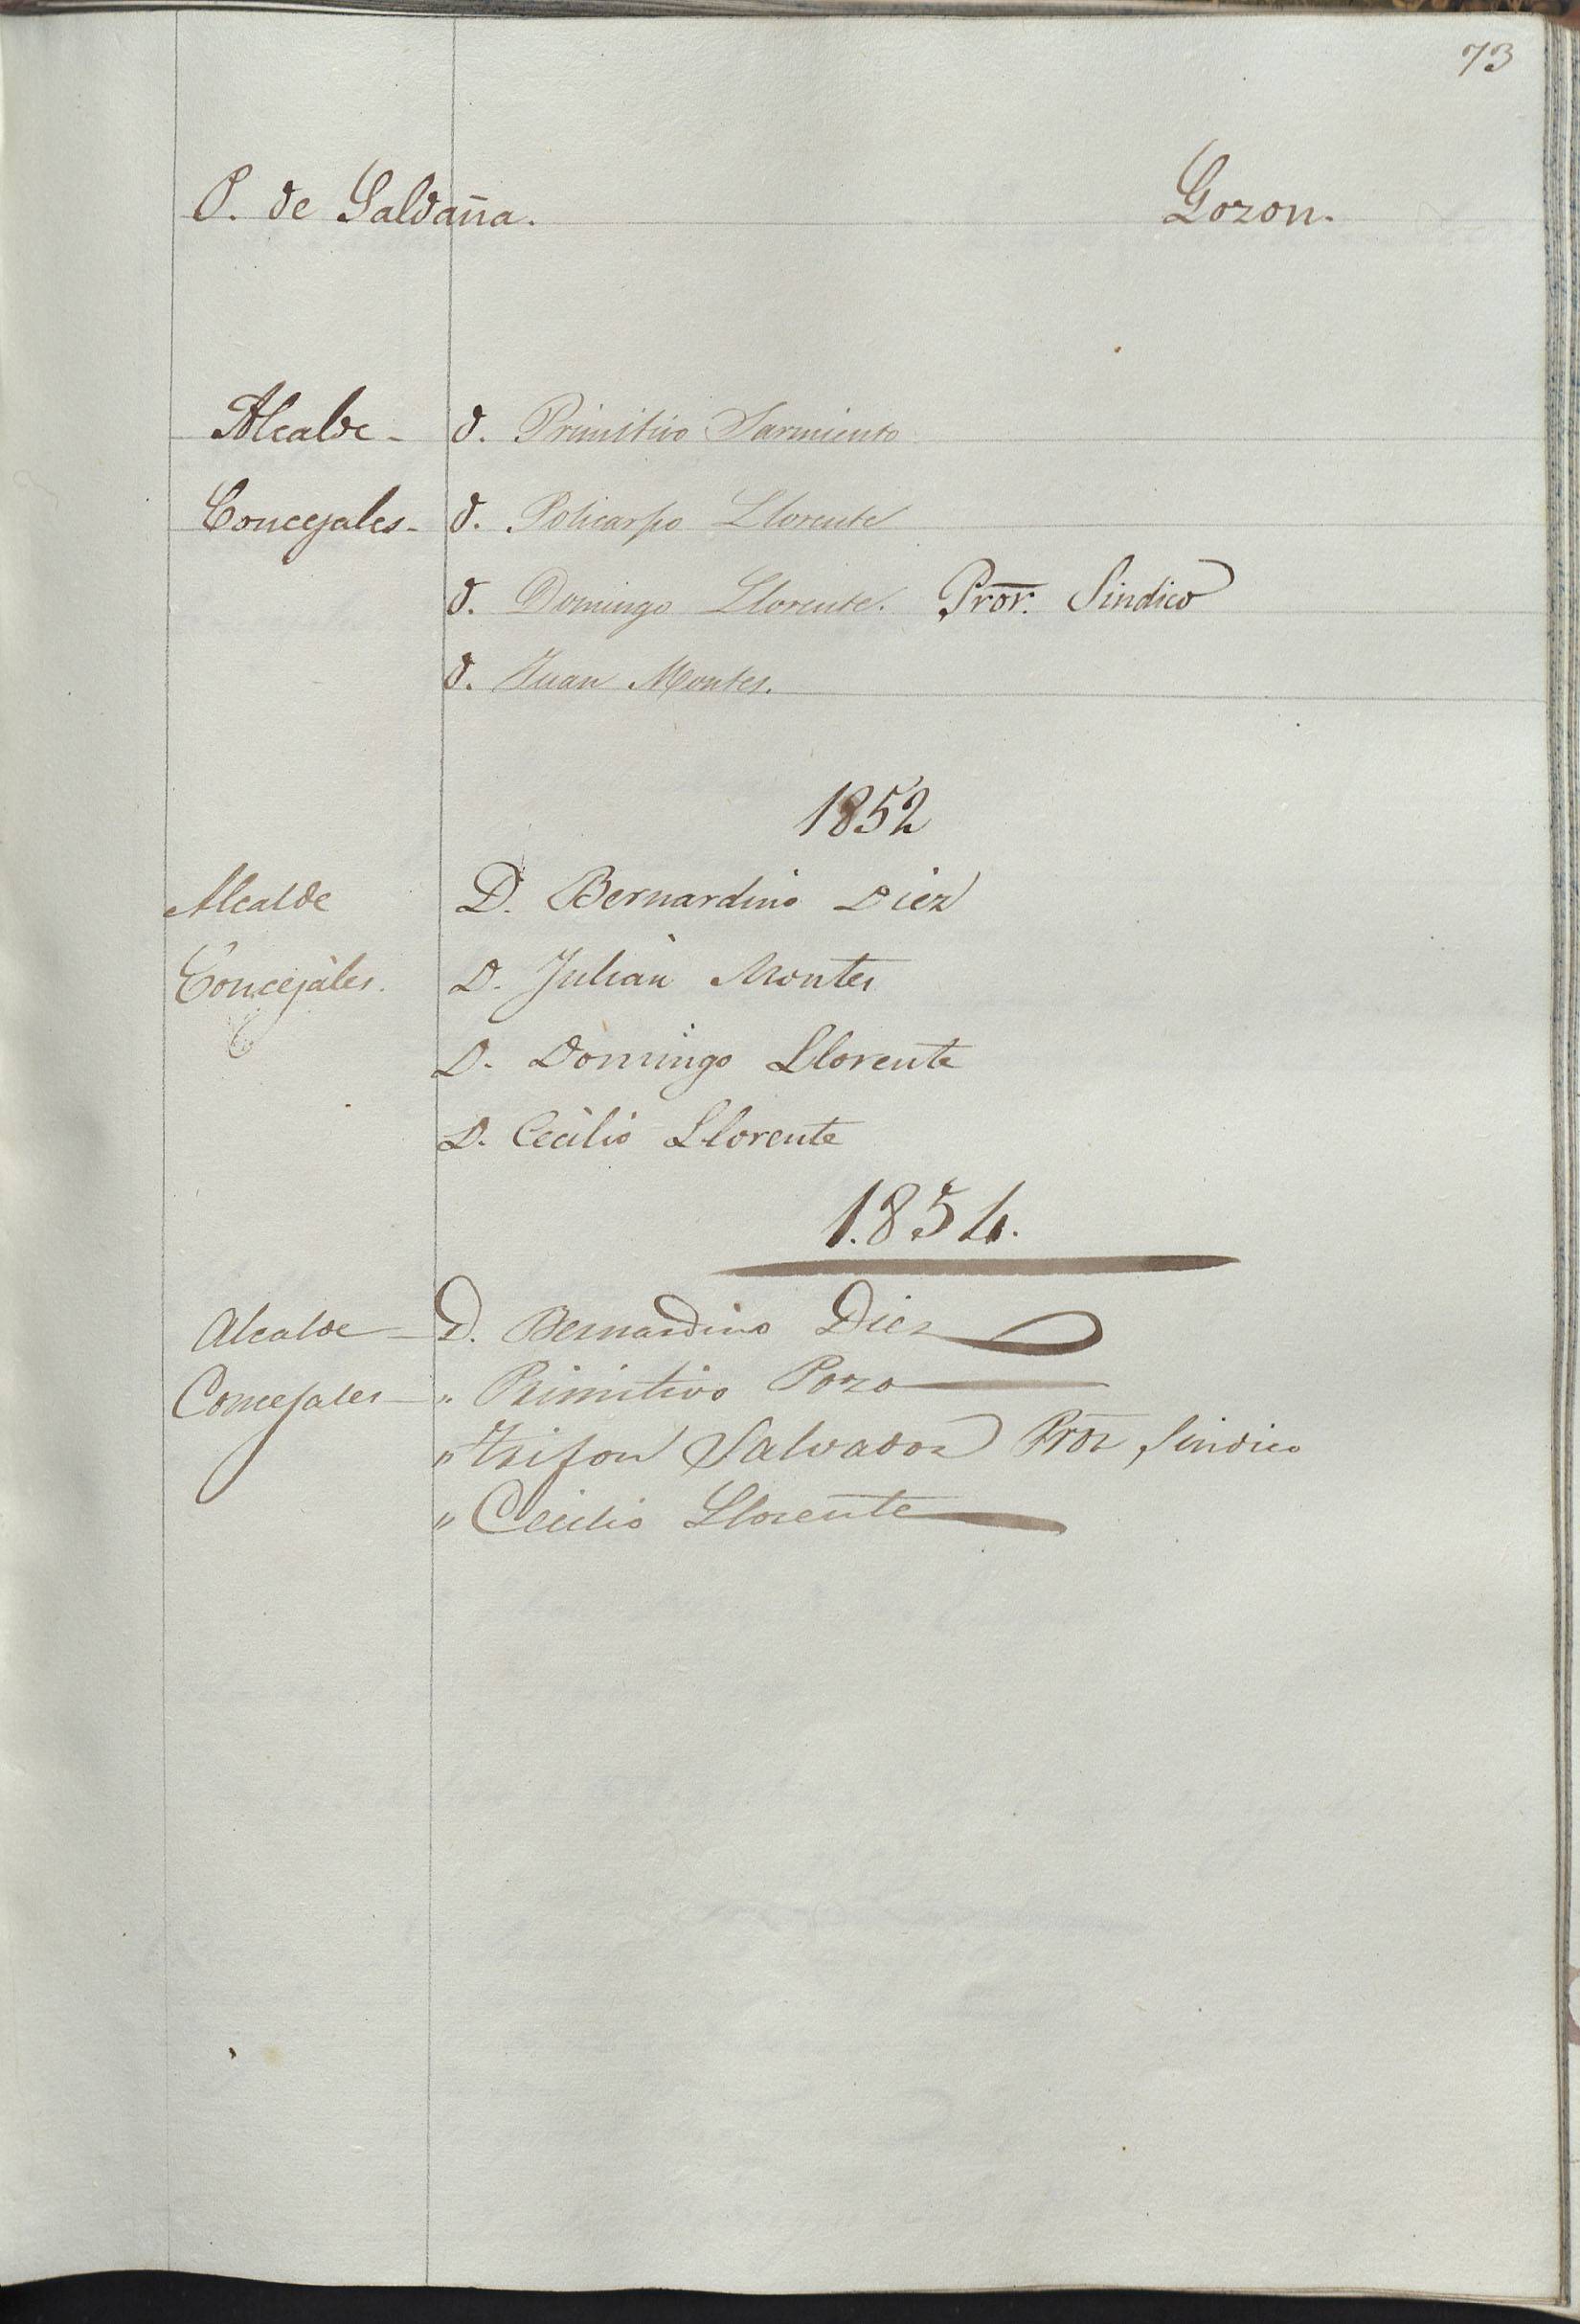 73
P. de Saldaña. Gozon.
Alcalde - D. Primitivo Sarmiento
Concejales - D. Policarpo Llorente
D. Domingo Llorente. Pror. Sindico
D. Juan Montes.
1852
Alcalde D. Bernardino Diez
Concejales. D. Julian Montes
D. Domingo Llorente
D. Cecilio Llorente
1.854.
Alcalde - D. Bernardino Diez
Concejales - " Primitivo Pozo
" Trifon Salvador Pror Sindico
" Cecilio Llorente